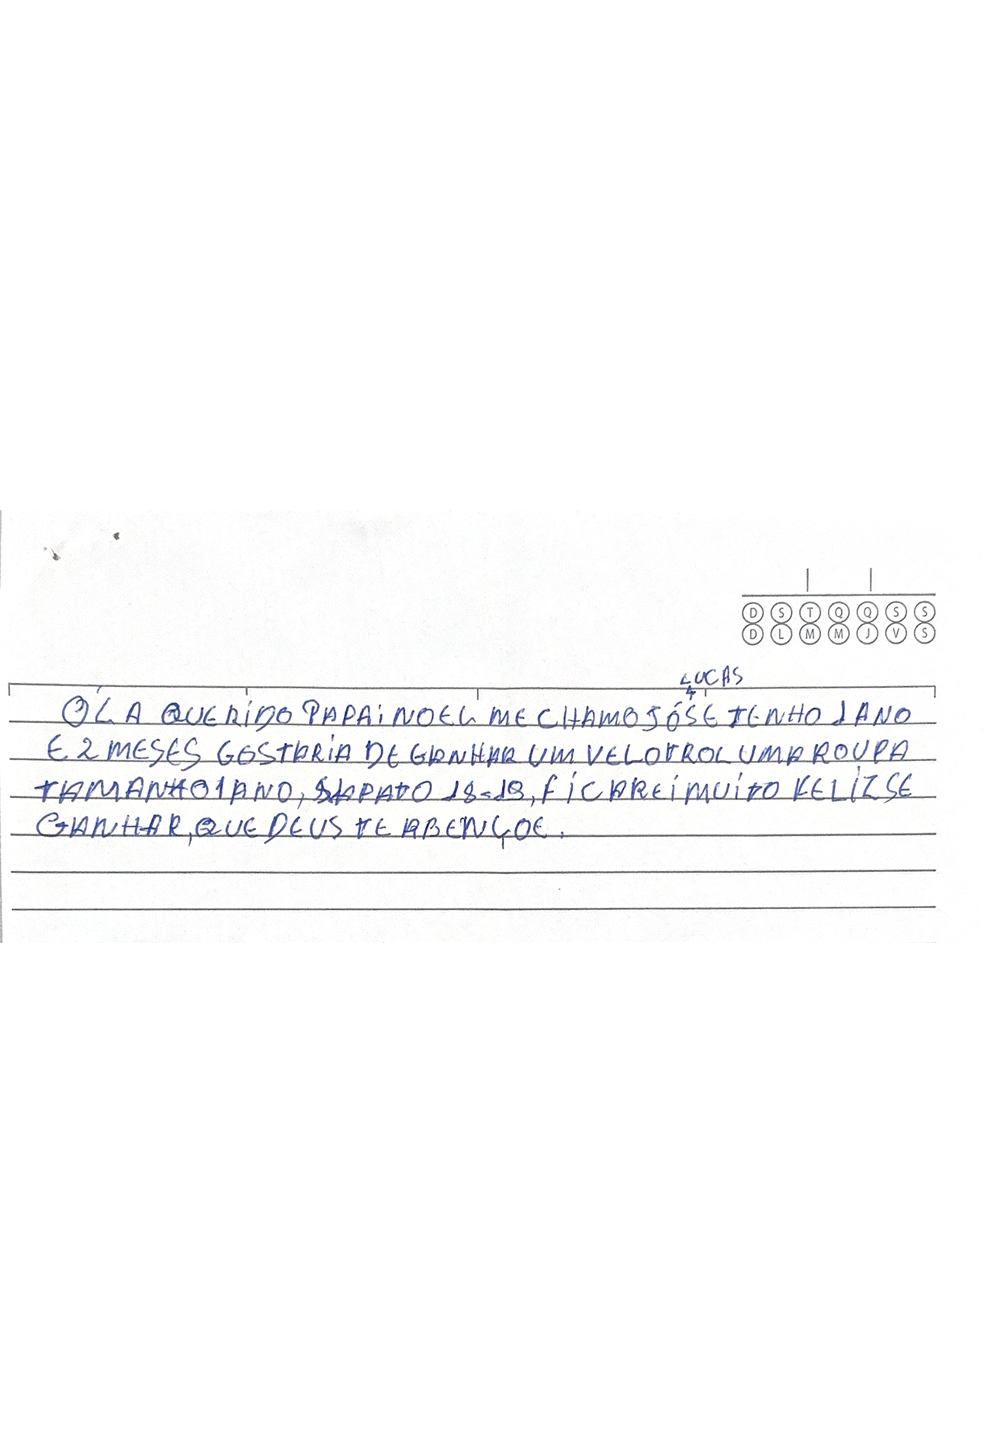 D S T Q Q S S
D L M M J V S
LUCAS
OLA QUERIDO PAPAI NOEL ME CHAMO JÓSE TENHO 1 ANO
E 2 MESES GOSTARIA DE GANHAR UM VELOTROL UMA ROUPA
TAMANHO 1 ANO, SAPATO 18-19, FICAREI MUITO FELIZ SE
GANHAR, QUE DEUS TE ABENÇOE.